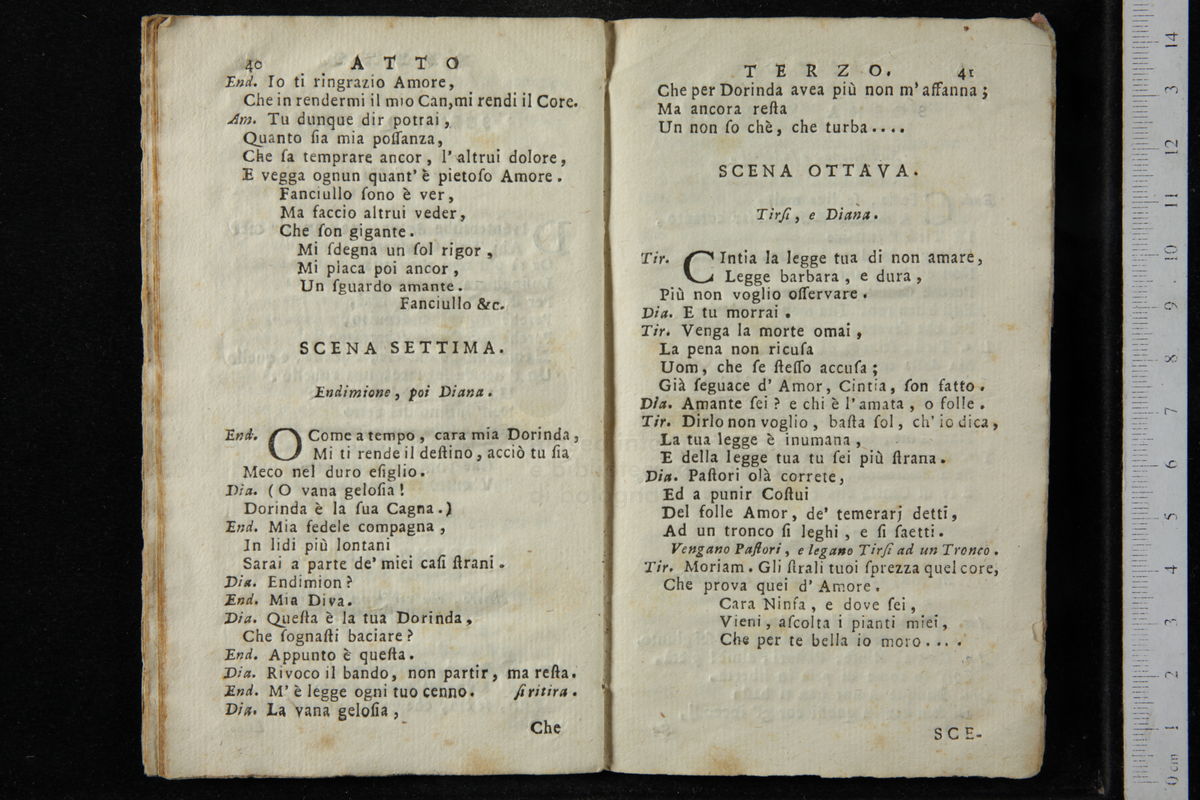 40 ATTO
End. Io ti ringrazio Amore,
Che in rendermi il mio Can, mi rendi il Core.
Am. Tu dunque dir potrai,
Quanto ſia mia poſſanza,
Che ſa temprare ancor, l'altrui dolore,
E vegga ognun quant'è pietoſo Amore.
Fanciullo ſono è ver,
Ma faccio altrui veder,
Che ſon gigante.
Mi ſdegna un ſol rigor,
Mi piaca poi ancor,
Un ſguardo amante.
Fanciullo &c.
SCENA SETTIMA.
Endimione, poi Diana.
End. O Come a tempo, cara mia Dorinda,
Mi ti rende il deſtino, acciò tu ſia
Meco nel duro eſiglio.
Dia. (O vana geloſia!
Dorinda è la ſua Cagna.)
End. Mia fedele compagna,
In lidi più lontani
Sarai a parte de' miei caſi ſtrani.
Dia. Endimion?
End. Mia Diva.
Dia. Queſta è la tua Dorinda,
Che ſognaſti baciare?
End. Appunto è queſta.
Dia. Rivoco il bando, non partir, ma reſta.
End. M'è legge ogni tuo cenno. ſi ritira.
Dia. La vana geloſia,
Che
TERZO. 41
Che per Dorinda avea più non m'affanna;
Ma ancora reſta
Un non ſo chè, che turba....
SCENA OTTAVA.
Tirſi, e Diana.
Tir. CIntia la legge tua di non amare,
Legge barbara, e dura,
Più non voglio oſſervare.
Dia. E tu morrai.
Tir. Venga la morte omai,
La pena non ricuſa
Uom, che ſe ſteſſo accuſa;
Già ſeguace d'Amor, Cintia, ſon fatto.
Dia. Amante ſei? e chi è l'amata, o folle.
Tir. Dirlo non voglio, baſta ſol, ch'io dica,
La tua legge è inumana,
E della legge tua tu ſei più ſtrana.
Dia. Paſtori olà correte,
Ed a punir Coſtui
Del folle Amor, de' temerarj detti,
Ad un tronco ſi leghi, e ſi ſaetti.
Vengano Paſtori, e legano Tirſi ad un Tronco.
Tir. Moriam. Gli ſtrali tuoi ſprezza quel core,
Che prova quei d'Amore.
Cara Ninfa, e dove ſei,
Vieni, aſcolta i pianti miei,
Che per te bella io moro....
SCE-
0 cm 1 2 3 4 5 6 7 8 9 10 11 12 3 14